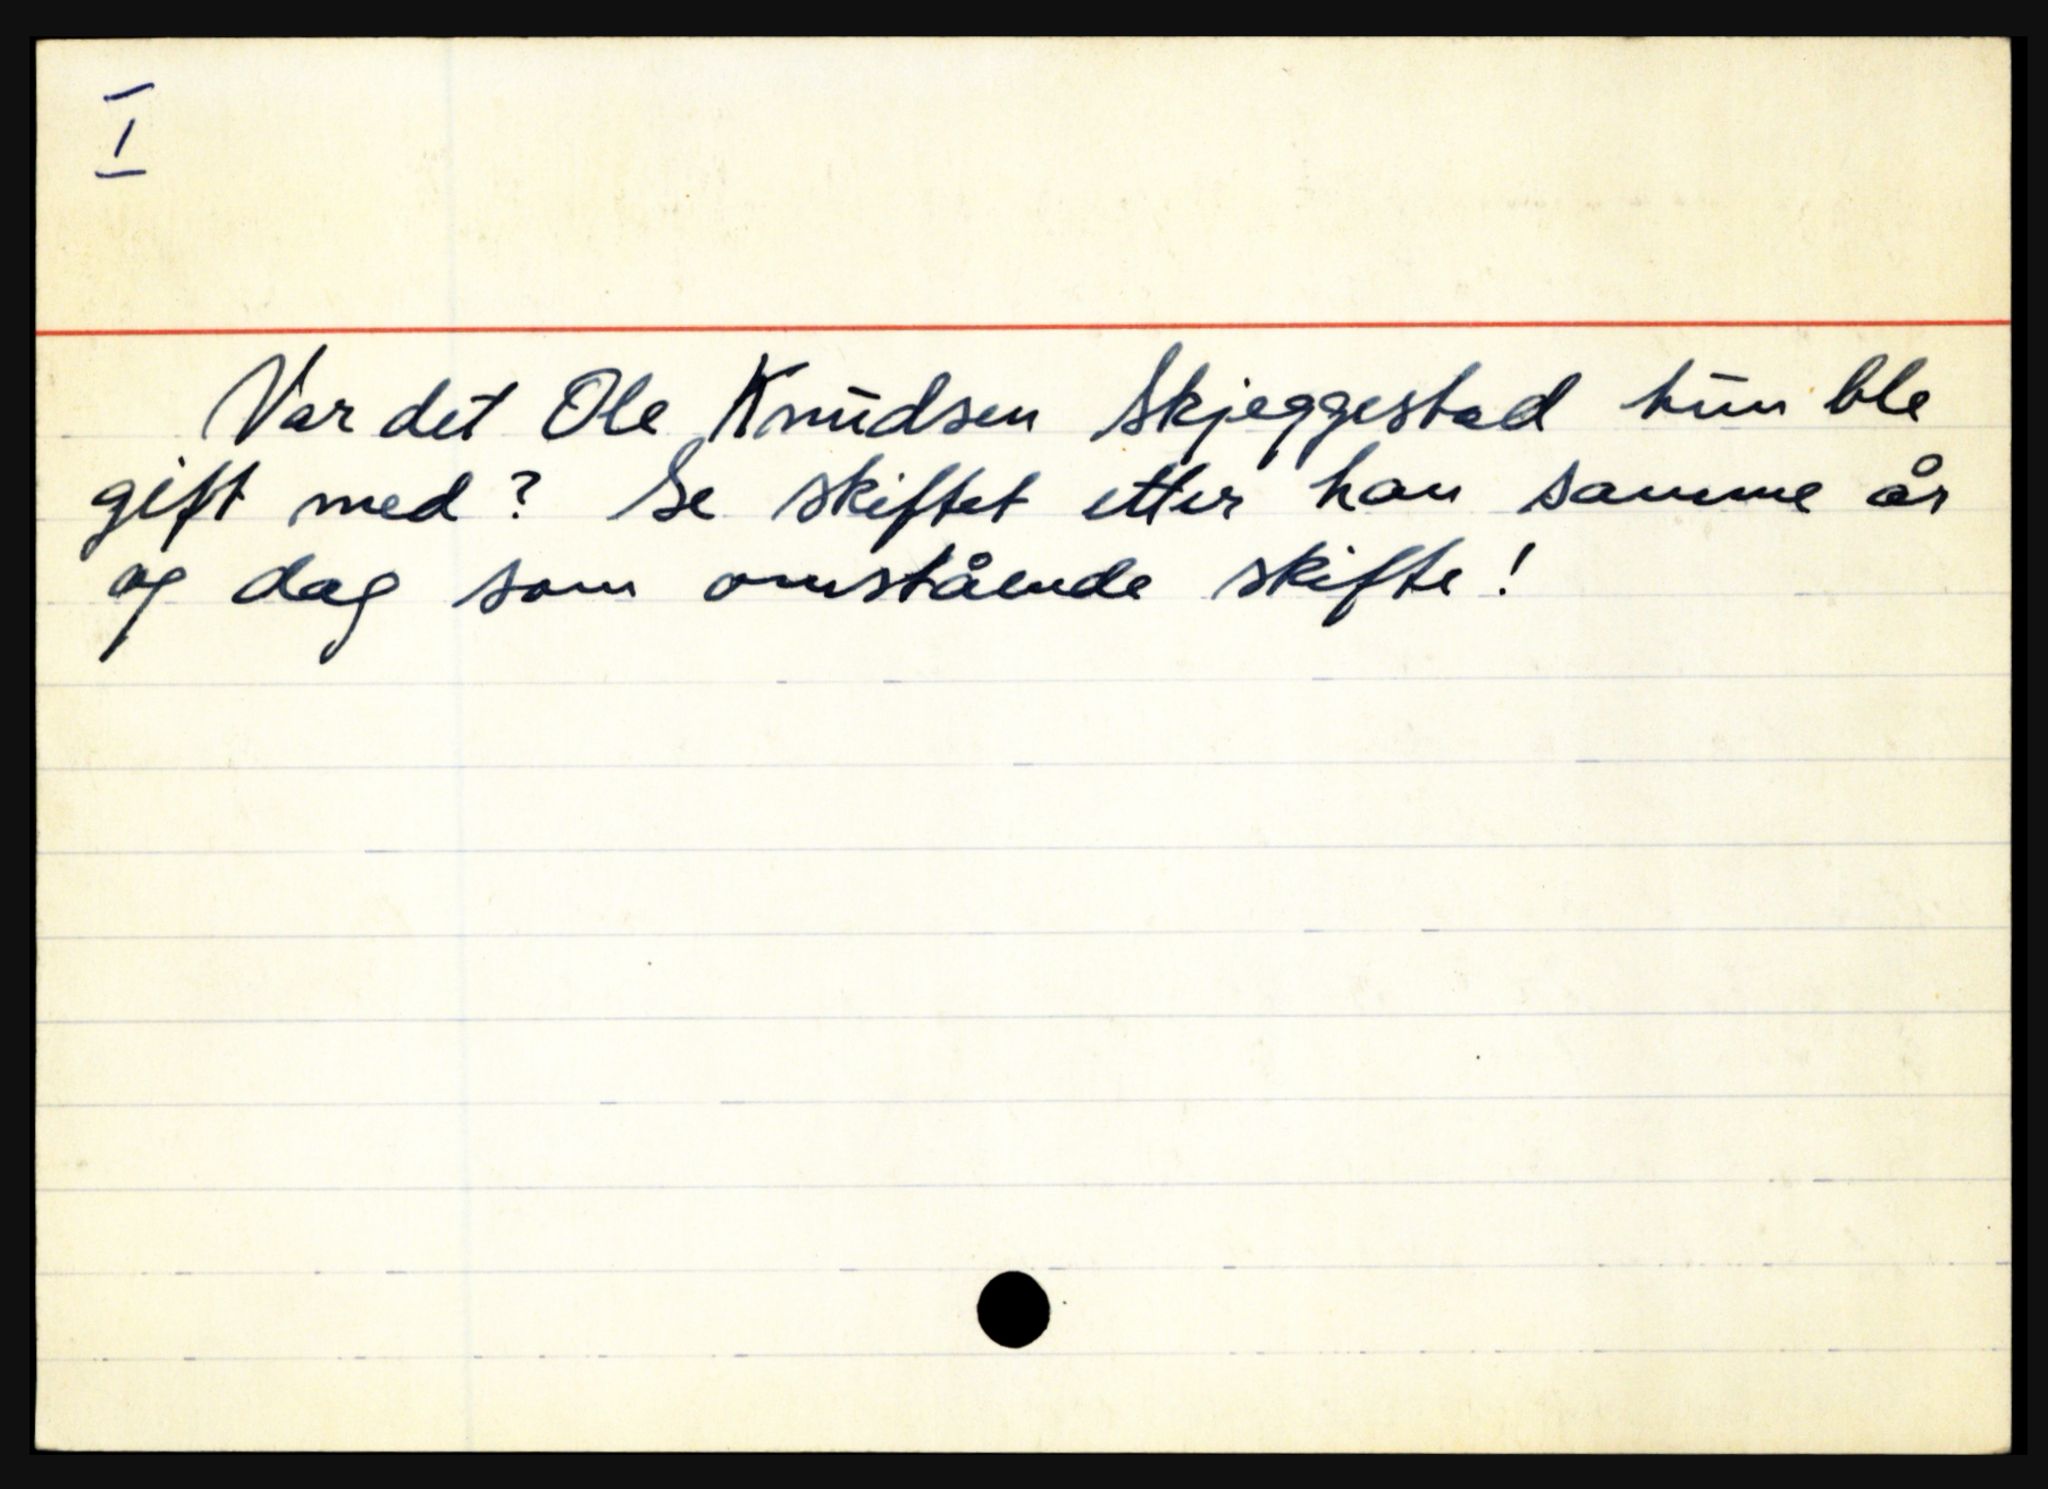 I
Var det Ole Knudsen Skjeggestad hun ble
gift med? Se skiftet etter han samme år
og dag som omstående skifte!